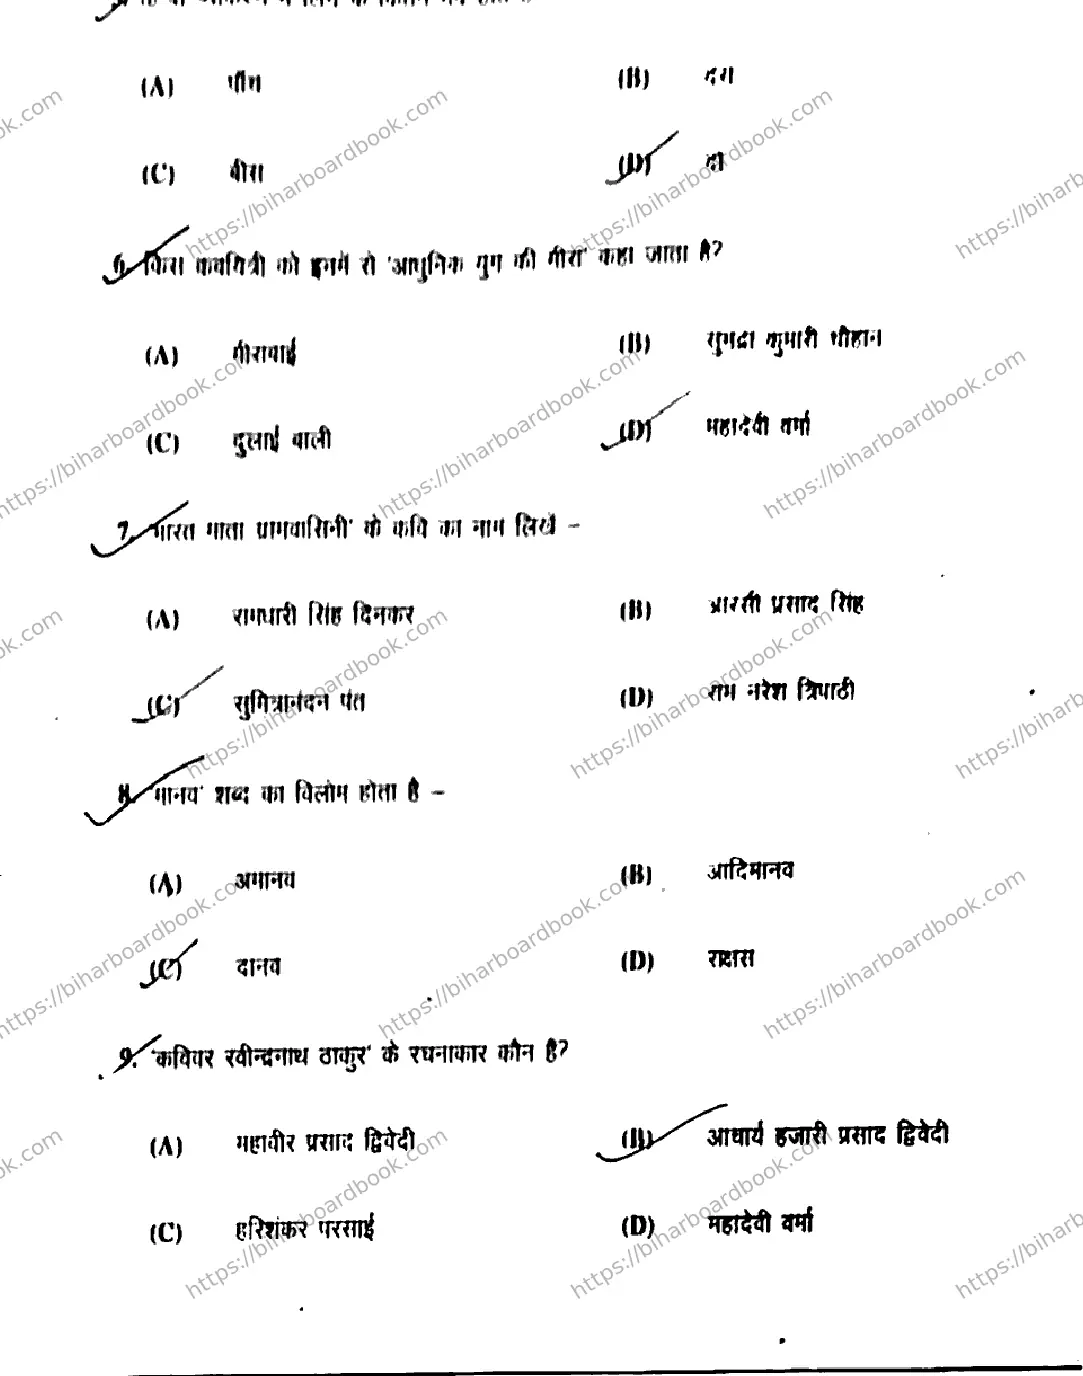 (A) पाँच (B) दस
(C) बीस (D) दो
6. किस कवयित्री को इनमें से 'आधुनिक युग की मीरा' कहा जाता है?
(A) मीराबाई (B) सुभद्रा कुमारी चौहान
(C) दुलाई वाली (D) महादेवी वर्मा
7. 'भारत माता ग्रामवासिनी' के कवि का नाम लिखें –
(A) रामधारी सिंह दिनकर (B) आरसी प्रसाद सिंह
(C) सुमित्रानंदन पंत (D) राम नरेश त्रिपाठी
8. 'मानव' शब्द का विलोम होता है –
(A) अमानव (B) आदिमानव
(C) दानव (D) राक्षस
9. 'कविवर रवीन्द्रनाथ ठाकुर' के रचनाकार कौन हैं?
(A) महावीर प्रसाद द्विवेदी (B) आचार्य हजारी प्रसाद द्विवेदी
(C) हरिशंकर परसाई (D) महादेवी वर्मा
https://biharboardbook.com